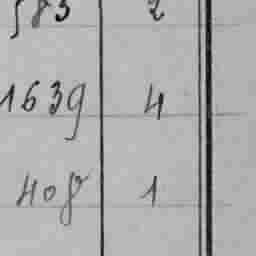 583 2
1639 4
408 1